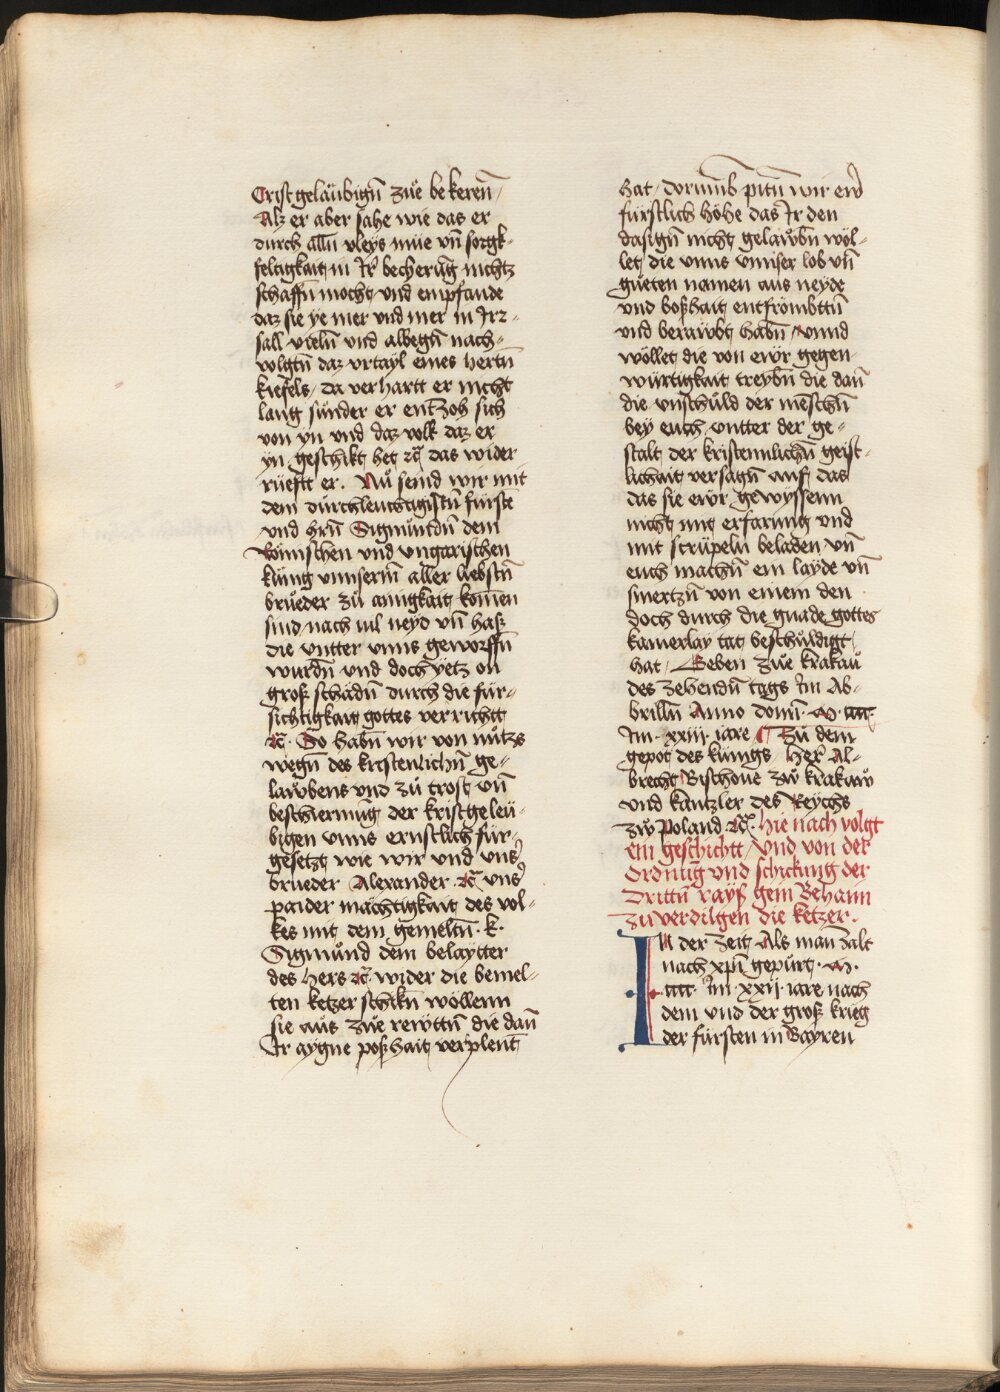 Cristgeläubigñ zůe bekereñ /
Alz er aber sahe wie das er
durch alln̄ vleys müe vn̄ sorgk-
feltigkait in Jr̄ becherūg nichtz
schaffn̄ mocht / vnd empfande
daz sie ye mer vnd mer in Jrr-
sall vieln̄ vnd albegn̄ nach-
volgtn̄ daz vrtayl eines hertn̄
kiesels / da verhartt er nicht
lang sünder er entzoh sich
von yn vnd daz volk daz er
yn geschikt het ꝛc̄ das wider
rüefft er . Nů seind wir mit
dem dürchleuchtigistn̄ fürstē
vnd hrn̄ Sigmündn̄ dem
Römischen vnd vngarischen
küng vnnserm̄ aller liebstn̄
brueder zů ainigkait komen
sind / nach vil neyd vn̄ hasz
die vntter vnns geworffn̄
wurdn̄ vnd doch yetz on
grosz schadn̄ durch die für-
sichtigkait gottes verrichtt
ꝛc̄ . So habn̄ wir von nütze
wegn̄ des kristenlichn̄ ge-
lawbens vnd zů trost vn̄
beschiermūg der kristgeleü-
bigen vnns ernstlich für-
gesetzt wie wir vnd vns̾
brueder Alexander . ꝛc̄ vns̾
paider mächtigkait des vol-
kes mit dem gemeltn̄ . k .
Sigmůnd dem belaytter
des hers ꝛc̄ wider die bemel-
ten ketzer schikn̄ wöllenn
sie aůs zůe rewttn̄ die dan̄
Jr aygne poszhait verplent̄
hat / dorumb pitn̄ wir ewr̄
fürstlich höhe das Jr den
dasign̄ nicht gelawbn̄ wöl-
let / die vnns vnnser lob vn̄
güeten namen aus neyde
vnd boszhait entfrömbttn̄
vnd berawbt habn̄ / vnnd
wöllet die von ewr gegen-
würtigkait treybn̄ die dan̄
die vnschuld der menschn̄
bey euch vntter der ge-
stalt der kristennlichn̄ geist-
lichait versagn̄ auf das
das sie ewr gewyssenn
nicht mit erfarung vnd
mit scrüpeln beladen / vn̄
euch machn̄ ein layde vn̄
smertzn̄ von einem den
doch durch die gnade gottes
kainerlay tat beschüldigt
hat / Geben zůe krakaů
des zehendn̄ tags Jm Ab-
brilln̄ Anno domī . M . cccc .
Jm . xxiij . iare Zů dem
gepot des künigs . Her̄ Al-
brecht Bischoue zẘ krakaw
vnd kantzler des Reychs
zẘ Poland . ꝛc̄ . Hie nach volgt
ein geschichtt / vnd von der
Ordnūg vnd schickung der
drittn̄ raysz gein Behaim
zu verdilgen die ketzer .
In der zeit Als man zalt
nach xp̄i gepürt . M .
. cccc . Jm . xxij . iare nach
dem vnd der grosz krieg
der fürsten in Bayren